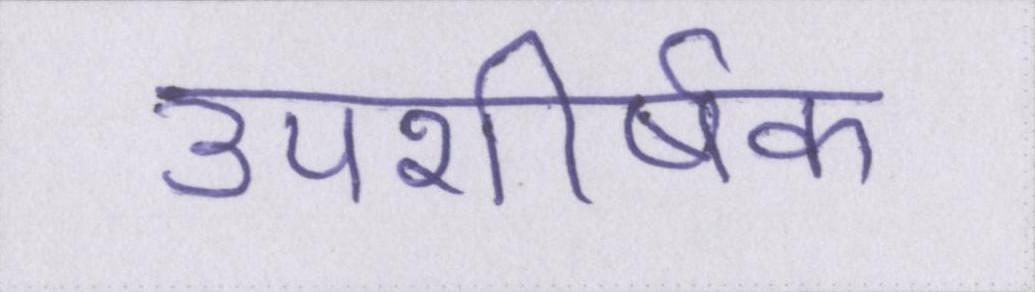 उपशीर्षक